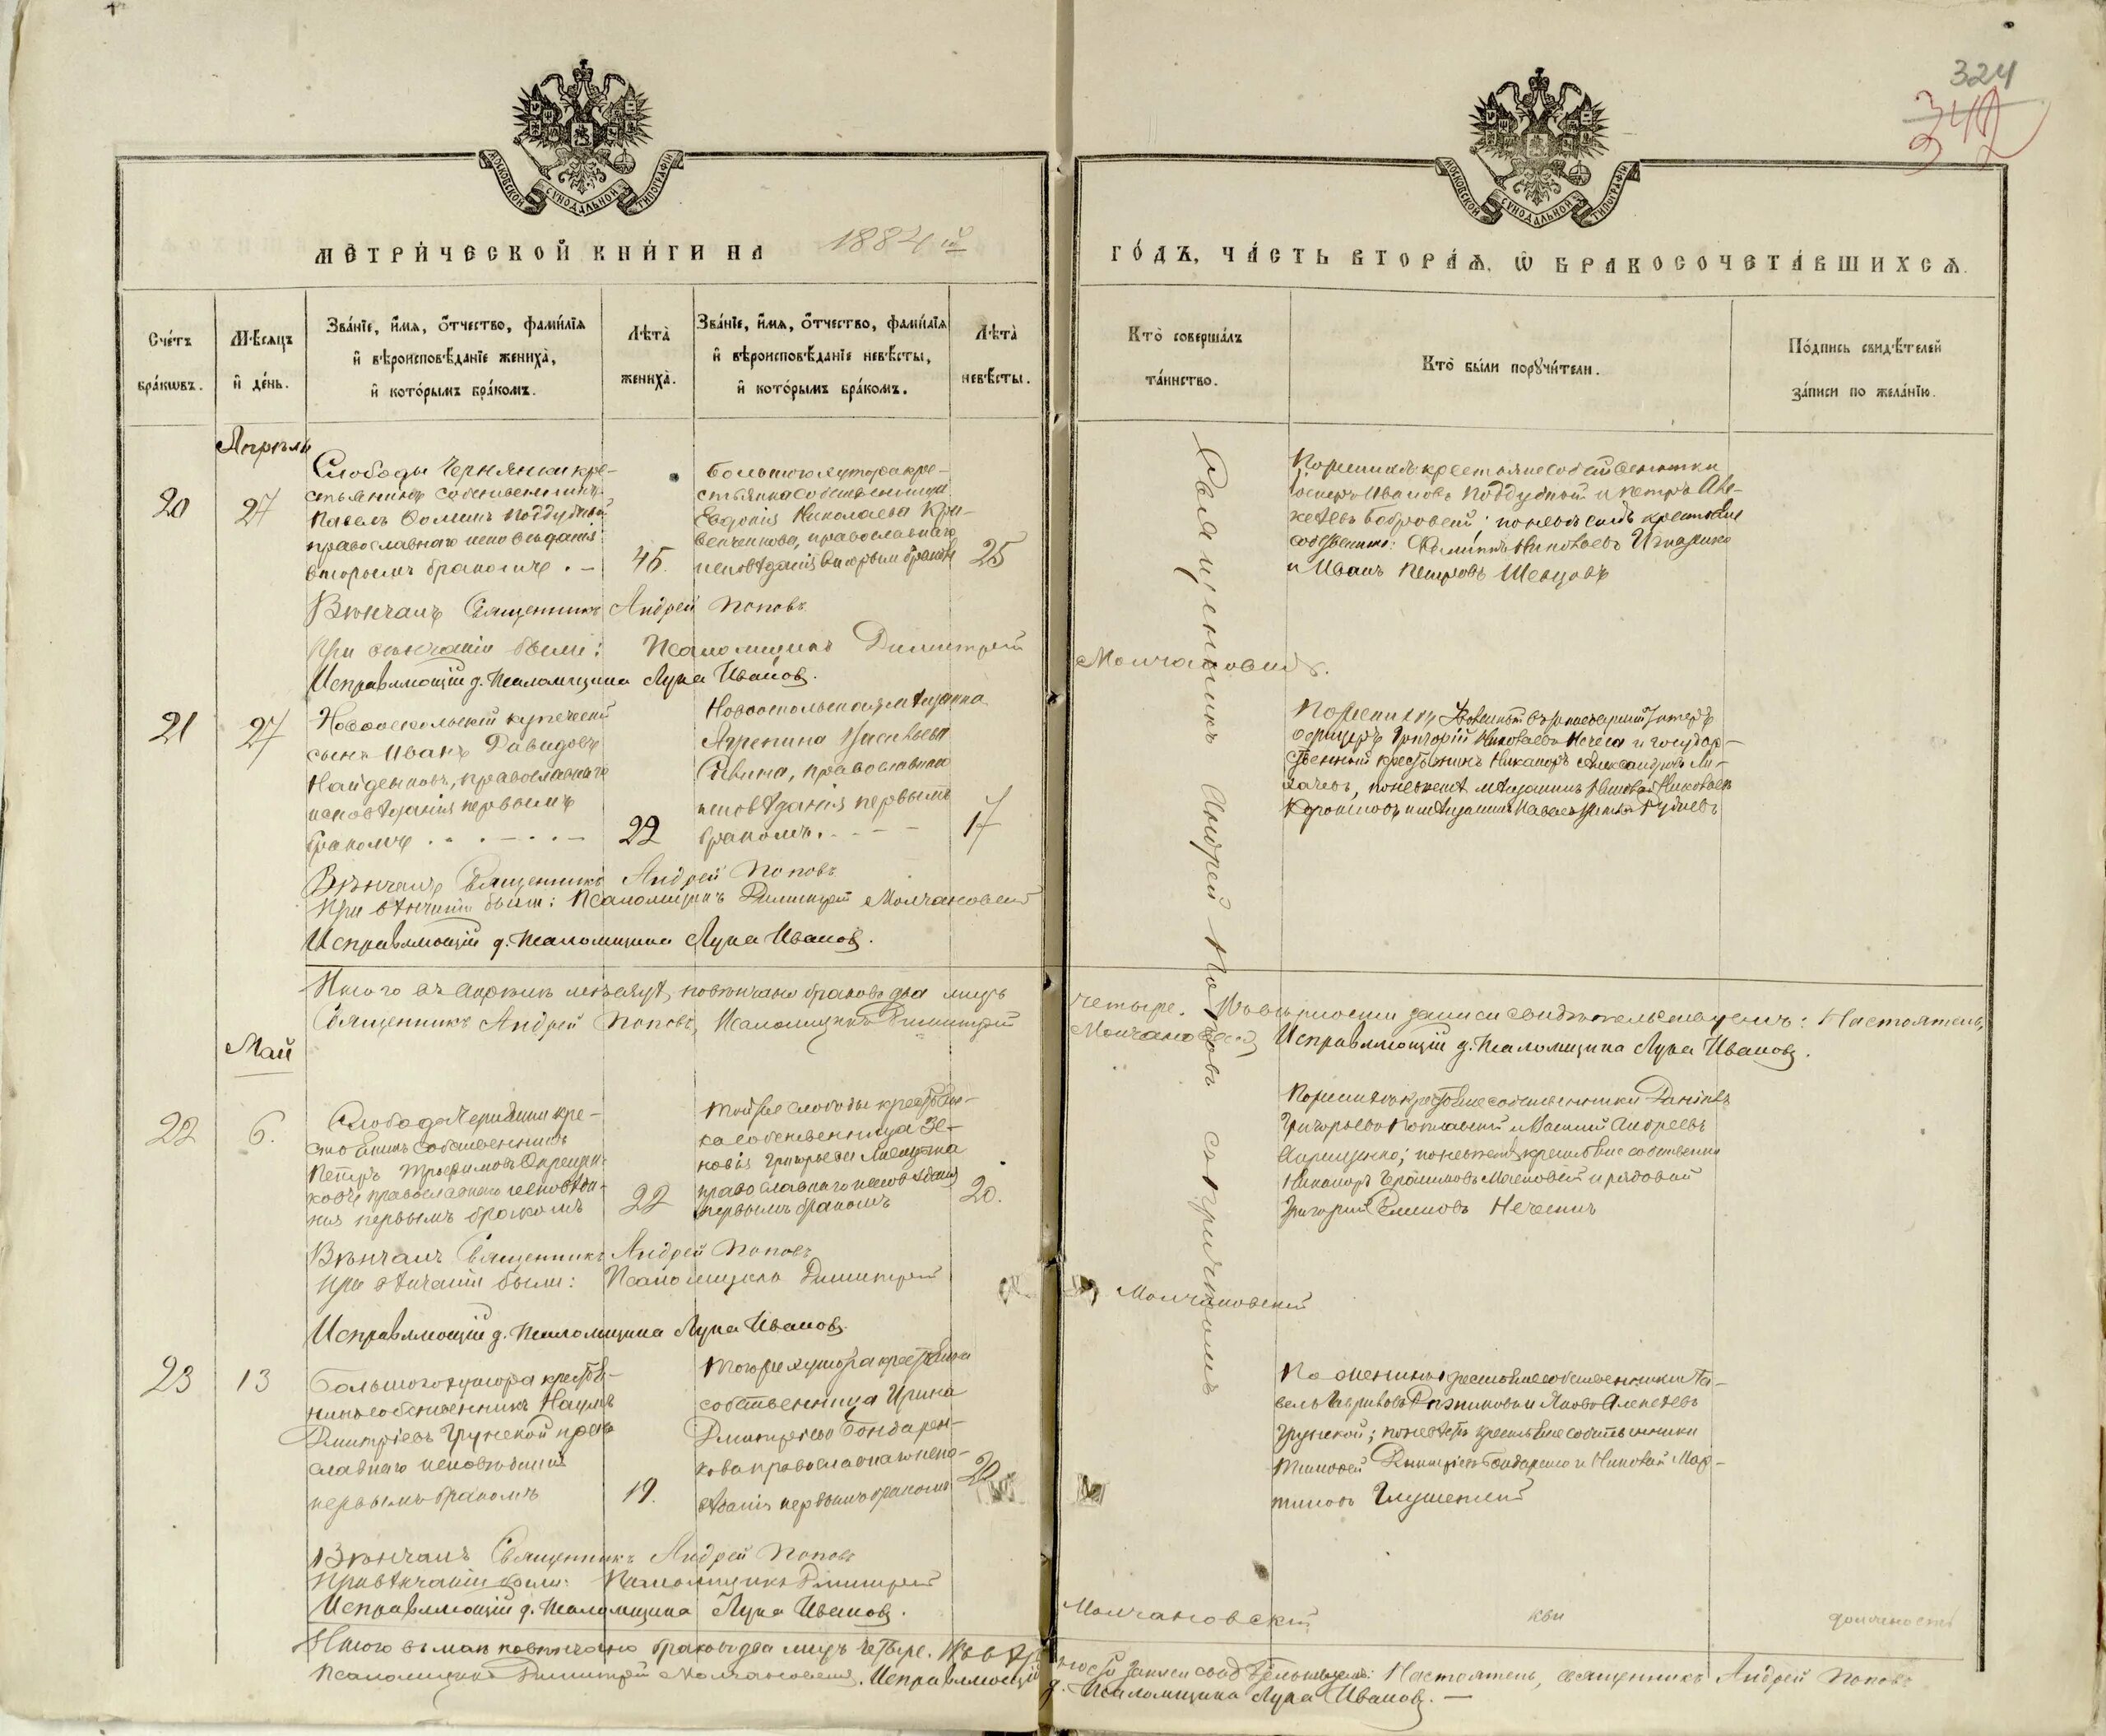 324
342
МОСКОВСКОЙ СѴНОДАЛЬНОЙ ТИПОГРАФІИ
МОСКОВСКОЙ СѴНОДАЛЬНОЙ ТИПОГРАФІИ
МЕТРИ́ЧЕСКОЙ КНИ́ГИ НА 1884 й
ГО́ДЪ, ЧА́СТЬ ВТОРА́Ѧ, Ѡ БРАКОСОЧЕТА́ВШИХСѦ.
Сче́тъ бра́кѡвъ.
Мѣ́сяцъ и҆ де́нь.
Зва́нїе, и҆́мѧ, ѻ҆́тчество, фами́лїѧ и҆ вѣроисповѣ́данїе жениха̀, и҆ кото́рымъ бра́комъ.
Лѣта̀ жениха̀.
Зва́нїе, и҆́мѧ, ѻ҆́тчество, фами́лїѧ и҆ вѣроисповѣ́данїе невѣ́сты, и҆ кото́рымъ бра́комъ.
Лѣта̀ невѣ́сты.
Кто̀ соверша́лъ та́инство.
Кто̀ бы́ли порꙋчи́тели.
По́дпись свидѣ́телей за́писи по жела́нїю.
Апрѣль
20
27
Слободы Чернянки кре-
стьянинъ собственникъ
Павелъ Фоминъ Поддубный
православнаго исповѣданія
вторымъ бракомъ. –
45.
Большого хутора кре-
стьянка собственница
Евдокія Николаева
православнаго
исповѣданія вторымъ бракомъ
25
По женихѣ крестьяне собственники
Ивановъ Поддубный и Петръ Але-
ксѣевъ Бобровский; по невѣстѣ крестьяне
собственники: Филиппъ Николаевъ
и Иванъ Петровъ Шевцовъ
Вѣнчалъ Священникъ Андрей Поповъ
При вѣнчаніи были: Псаломщикъ Димитрій
Молчановскій.
Исправляющій д. Псаломщика Лука Ивановъ.
21
27
Новооскольскій купеческій
сынъ Иванъ Давидовъ
Найденковъ, православнаго
исповѣданія первымъ
бракомъ
22
Новооскольская мѣщанка
Агрепина Васильева
православнаго
исповѣданія первымъ
бракомъ.
17
По женихѣ
офицеръ Григорій Николаевъ Нечеса и государ-
ственный крестьянинъ Никаноръ Александровъ Ли-
хачевъ, по невѣстѣ мѣщанинъ Николай Николаевъ
и мѣщанинъ Павелъ Гублевъ
Вѣнчалъ Священникъ Андрей Поповъ
При вѣнчаніи были: Псаломщикъ Димитрій Молчановскій
Исправляющій д. Псаломщика Лука Ивановъ.
Итого въ апрѣлѣ мѣсяцѣ повѣнчано браковъ два лицъ
четыре. Въ вѣрности записи свидѣтельствуемъ: Настоятель,
Священникъ Андрей Поповъ, Псаломщикъ Димитрій
Молчановскій, Исправляющій д. Псаломщика Лука Ивановъ.
Май
22
6.
Слободы Чернянки кре-
стьянинъ собственникъ
Петръ Трофимовъ
православнаго исповѣда-
нія первымъ бракомъ
22
Той же слободы крестьян-
ка собственница Зе-
новія Григорьева
православнаго исповѣданія
первымъ бракомъ
20.
По женихѣ крестьяне собственники Даніилъ
Григорьевъ Поплавскій и Василій Андреевъ
по невѣстѣ крестьяне собственники
Никаноръ Герасимовъ Мясновой и рядовой
Григорій Нечесинъ
Вѣнчалъ Священникъ Андрей Поповъ
При вѣнчаніи были: Псаломщикъ Димитрій
Молчановскій
Исправляющій д. Псаломщика Лука Ивановъ.
23
13
Большого хутора крестья-
нинъ собственникъ Наумъ
Дмитріевъ Грунской право-
славнаго исповѣданія
первымъ бракомъ
19.
Того же хутора крестьянка
собственница Ирина
Дмитріева Бондарен-
кова православнаго испо-
вѣданія первымъ бракомъ
20
По женихѣ крестьяне собственники Па-
велъ Гавриловъ и Яковъ Алексѣевъ
Грунской; по невѣстѣ крестьяне собственники
Тимофей Дмитріевъ Бондаренко и Николай Мар-
тиновъ Глущенкій
Вѣнчалъ Священникъ Андрей Поповъ
При вѣнчаніи были: Псаломщикъ Димитрій
Молчановскій
Исправляющій д. Псаломщика Лука Ивановъ.
Итого въ маѣ повѣнчано браковъ два лицъ четыре. Въ вѣр-
ности записи свидѣтельствуемъ: Настоятель, священникъ Андрей Поповъ
Псаломщикъ Димитрій Молчановскій. Исправляющій
д. Псаломщика Лука Ивановъ. –
Священникъ Андрей Поповъ съ причтомъ